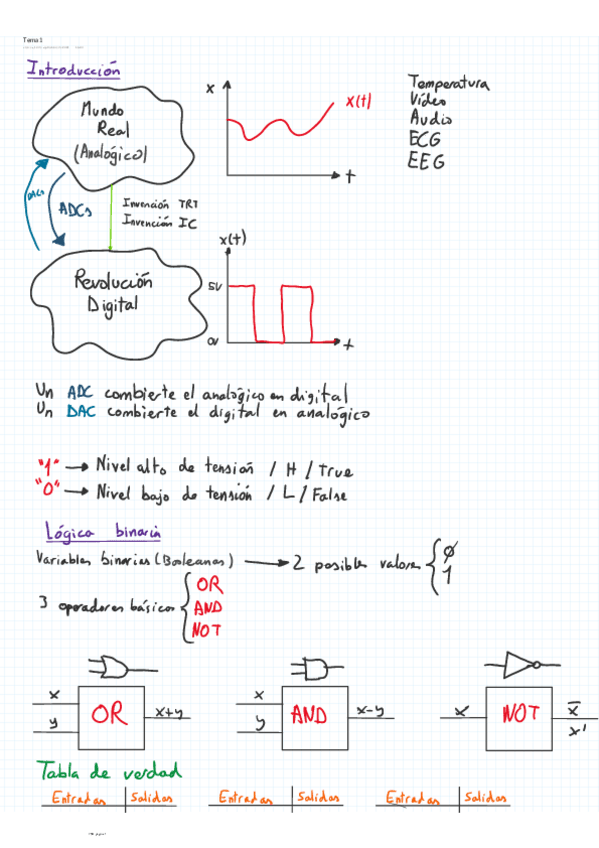 Tema 1
Introducción
Mundo
Real
(Analógico)
x
x(t)
t
Temperatura
Vídeo
Audio
ECG
EEG
DACs
ADCs
Invención TRT
Invención IC
Revolución
Digital
x(t)
5V
0V
t
Un ADC combierte el analógico en digital
Un DAC combierte el digital en analógico
"1" → Nivel alto de tensión / H / True
"0" → Nivel bajo de tensión / L / False
Lógica binaria
Variables binarias (Booleanas) → 2 posibles valores { 0
1
3 operadores básicos { OR
AND
NOT
x
y
OR
x+y
x
y
AND
x-y
x
NOT
x̅
x'
Tabla de verdad
Entradas | Salidas
Entradas | Salidas
Entradas | Salidas